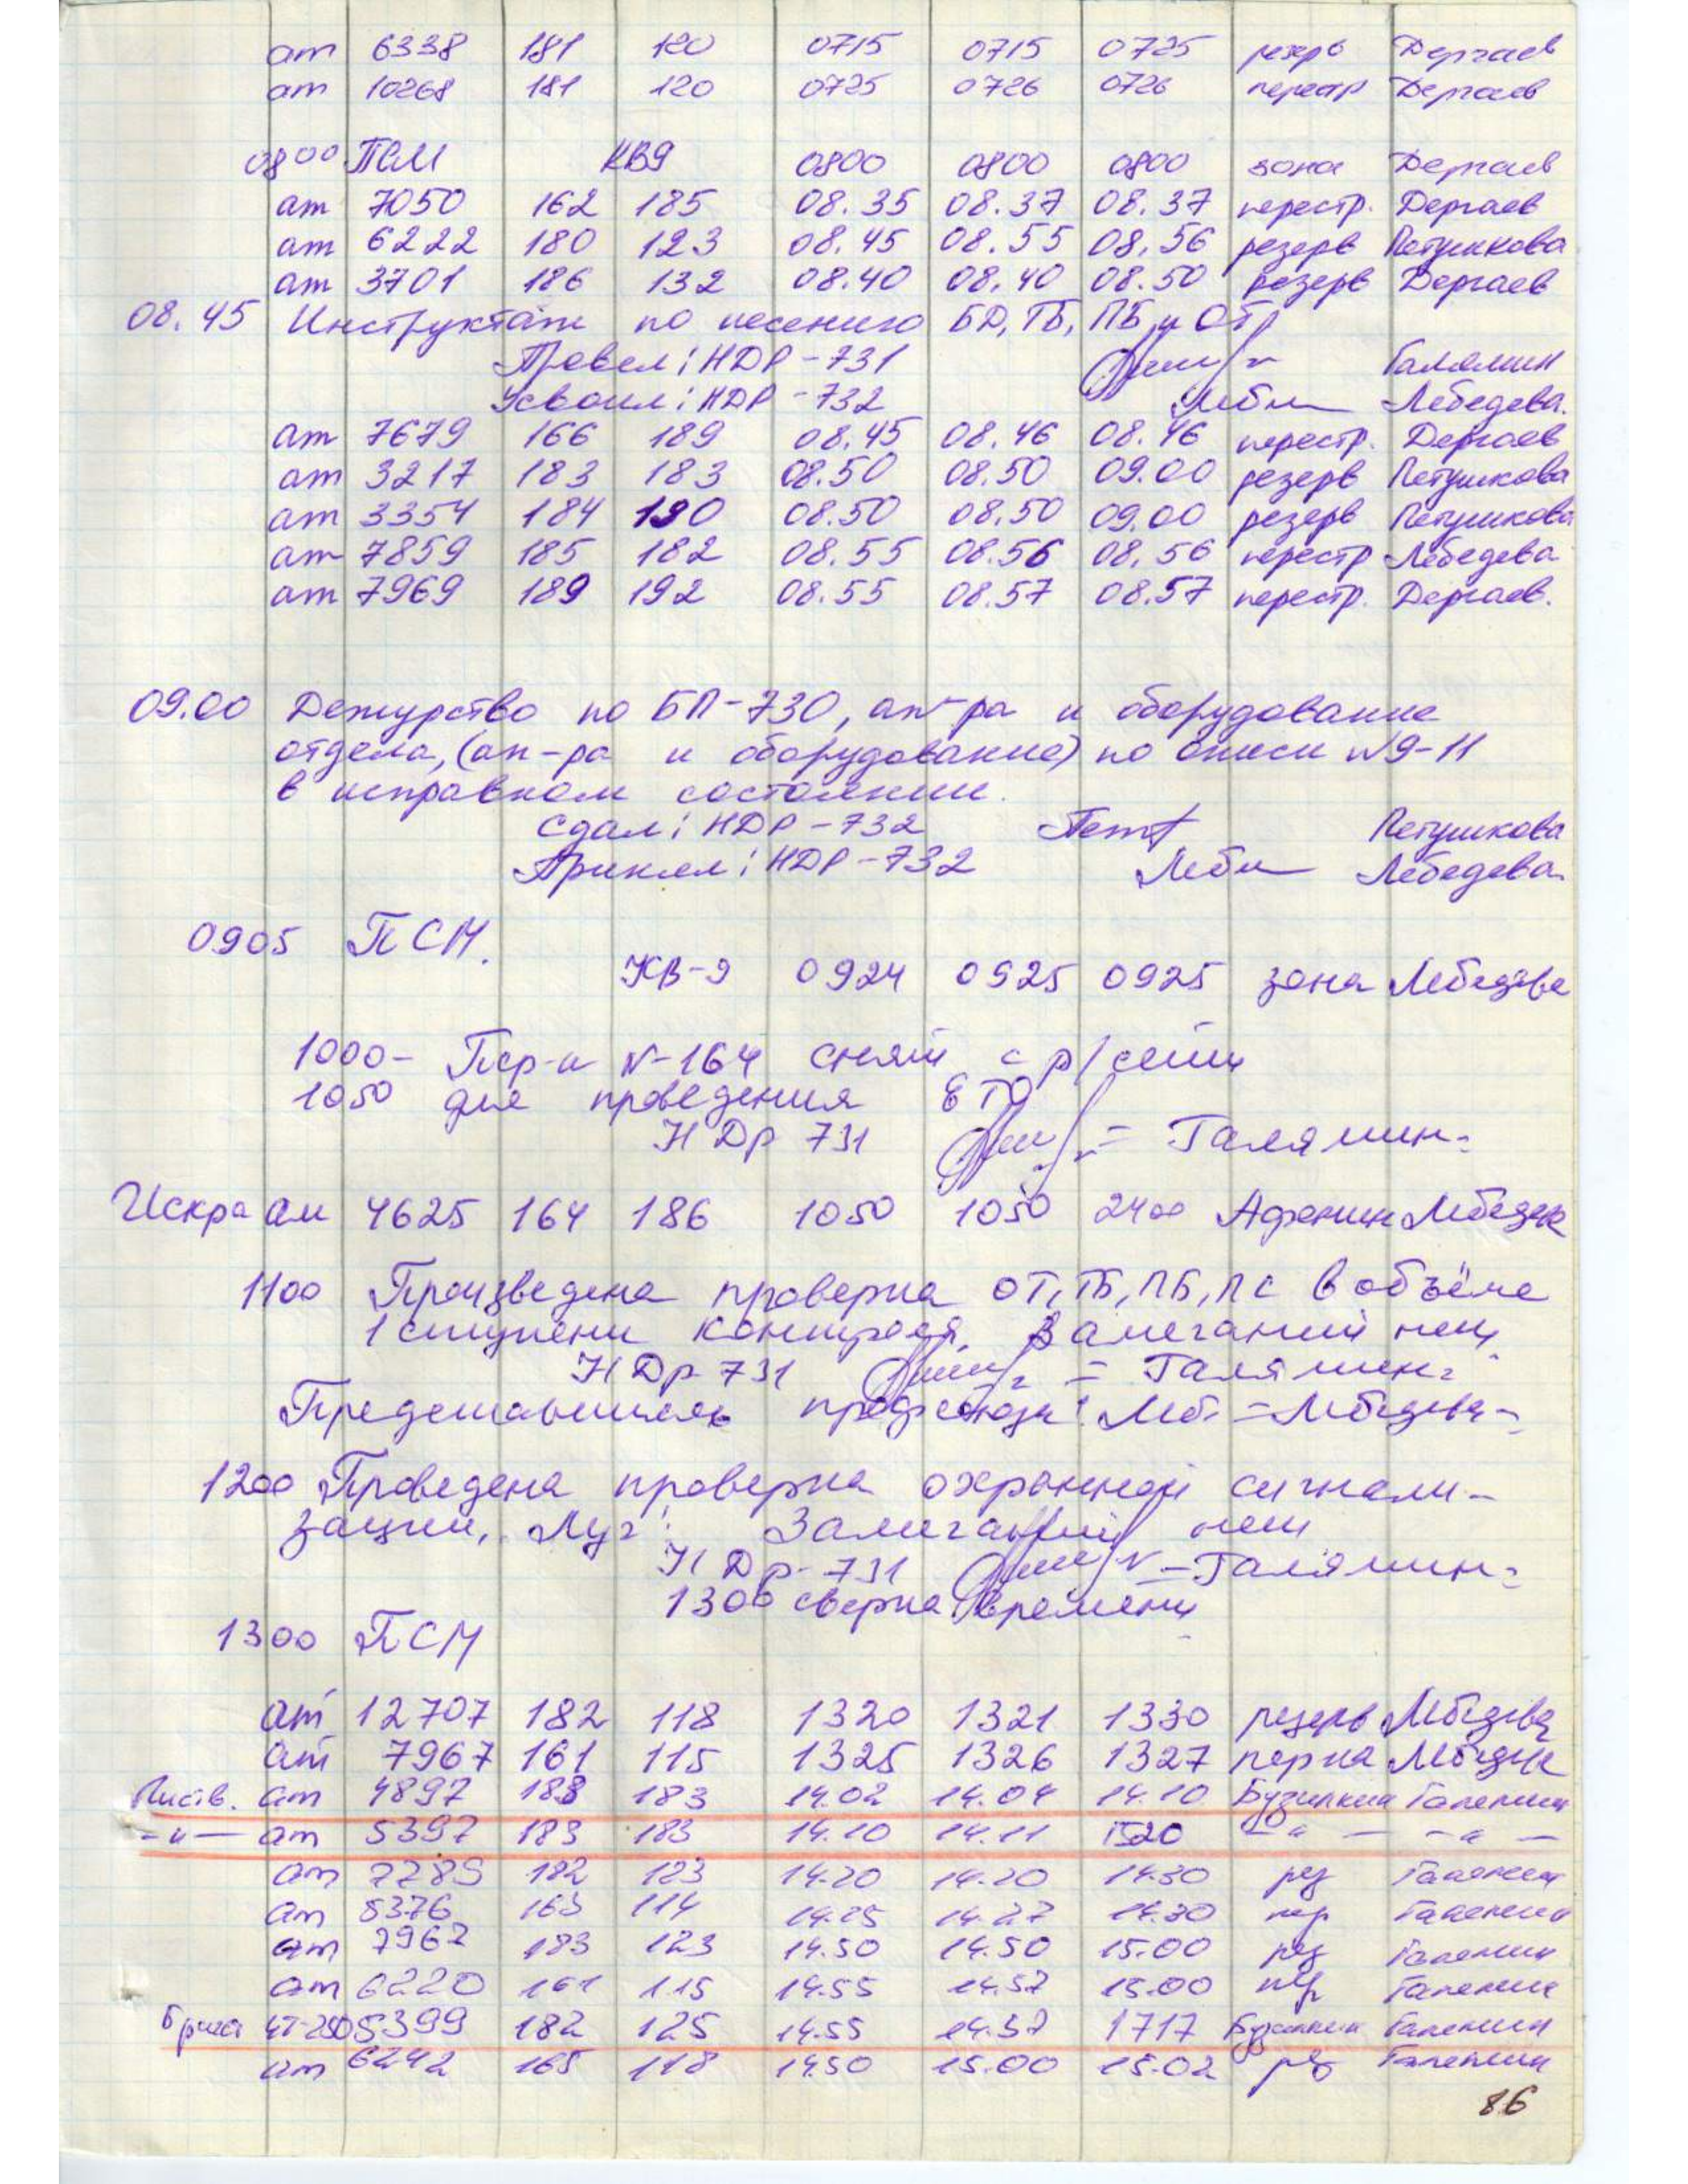 ат 6338 181 120 0715 0715 0725 резерв Дергаев
ат 10268 181 120 0725 0726 0726 перестр Дергаев
0800 ПСМ КВ9 0800 0800 0800 зона Дергаев
ат 7050 162 185 08.35 08.37 08.37 перестр. Дергаев
ат 6222 180 123 08.45 08.55 08.56 резерв Петушкова
ат 3701 186 132 08.40 08.40 08.50 резерв Дергаев
08.45 Инструктаж по несению БД, ТБ, ПБ и ОТ
Провел: НДР-731 Галямин
Усвоил: НДР-732 Лебедева.
ат 7679 166 189 08.45 08.46 08.46 перестр. Дергаев
ат 3217 183 183 08.50 08.50 09.00 резерв Петушкова
ат 3354 184 190 08.50 08.50 09.00 резерв Петушкова
ат 7859 185 182 08.55 08.56 08.56 перестр Лебедева
ат 7969 189 192 08.55 08.57 08.57 перестр. Дергаев.
09.00 Дежурство по БП-730, ап-ра и оборудование
отдела, (ап-ра и оборудование) по описи №9-11
в исправном состоянии.
Сдал: НДР-732 Петушкова
Принял: НДР-732 Лебедева.
0905 ПСМ.
КВ-9 0924 0925 0925 зона Лебедева
1000- Пер-к №-164 снят с р/сети
1050 для проведения ЕТО
НДр 731 =Галямин=
Искра ам 4625 164 186 1050 1050 2400 Афонин Лебедев
1100 Произведена проверка ОТ, ТБ, ПБ, ПС в объёме
1 ступени контроля. Замечаний нет
НДр 731 =Галямин=
Представитель профсоюза: Леб =Лебедева=
1200 Проведена проверка охранной сигнали-
зации "Луч". Замечаний нет
НДр-731 =Галямин=
1306 сверка времени
1300 ПСМ
ат 12707 182 118 1320 1321 1330 резерв Лебедева
ат 7967 161 115 1325 1326 1327 пер-ка Лебедев
Листв. ат 4897 183 183 14.02 14.04 14.10 Бузилкин Галямин
-"- ат 5397 183 183 14.10 14.11 1520 -"- -"-
ат 7289 182 123 14.20 14.20 14.30 рез Галямин
ат 5376 163 114 14.25 14.27 14.30 пер Галямин
ат 7962 183 123 14.50 14.50 15.00 рез Галямин
ат 6220 161 115 14.55 14.57 15.00 пер Галямин
ЧТ-250 5399 182 125 14.55 14.57 1717 Бузилкин Галямин
ат 6242 165 118 1450 15.00 15.02 рез Галямин
86